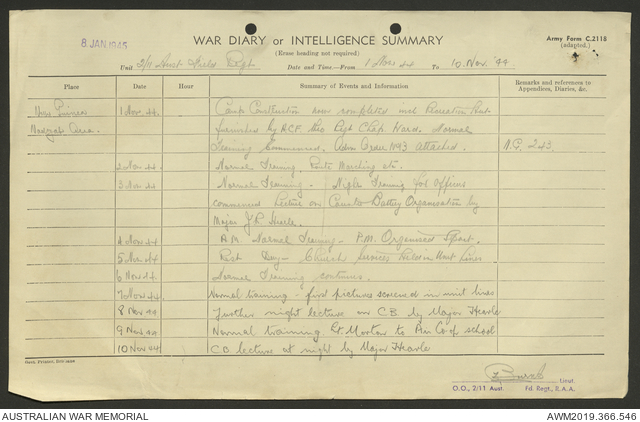 8 JAN 1945
WAR DIARY or INTELLIGENCE SUMMARY
(Erase heading not required)
Army Form C.2118
(adapted.)
Unit 2/11 Aust Field Regt
Date and Time—From 1 Nov 44 To 10 Nov '44
Place Date Hour Summary of Events and Information Remarks and references to Appendices, Diaries, &c.
New Guinea 1 Nov. 44. Camp Construction now completed incl Recreation Hut
Nadzab Area. furnished by A.C.F. Regt Chap. Normal
Training Commenced. Adm 1143 attached. 243.
2 Nov 44 Normal Training, Route Marching etc.
3 Nov 44 Normal Training - Night Training for Officers
commenced lecture on Battery Organisation by
Major Hearle.
4 Nov 44 A.M. Normal Training - P.M. Organised Sport.
5 Nov 44 Rest Day - Church Services held in Unit Lines
6 Nov 44 Normal Training continues.
7 Nov 44. Normal training - first pictures screened in unit lines
8 Nov 44 Further night lecture on C.B. by Major Hearle
9 Nov 44 Normal training Lt. Morton to school
10 Nov 44 C.B. lecture at night by Major Hearle
Lieut.
O.O., 2/11 Aust. Fd. Regt., R.A.A.
AUSTRALIAN WAR MEMORIAL
AWM2019.366.546